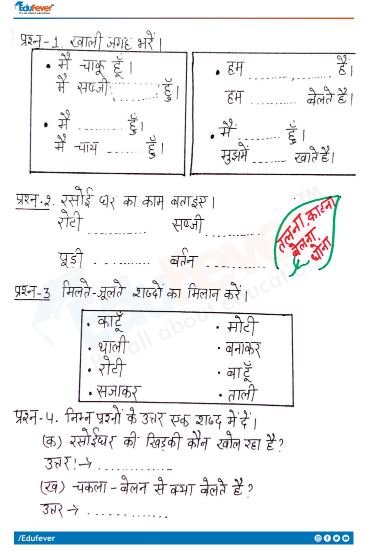 EduFever
It's all about education
प्रश्न-1. खाली जगह भरें।
• मैं चाकू हूँ।
मैं सब्जी .......... हूँ।
• मैं .......... हूँ।
मैं चाय .......... हूँ।
• हम .......... हैं।
हम .......... बेलते हैं।
• मैं .......... हूँ।
मुझमें .......... खाते हैं।
प्रश्न-2. रसोई घर का काम बताइए।
रोटी .......... सब्जी ..........
पूड़ी .......... बर्तन ..........
तलना काटना
बेलना
धोना
प्रश्न-3 मिलते-जूलते शब्दों का मिलान करें।
• काटूँ • मोटी
• थाली • बनाकर
• रोटी • बाटूँ
• सजाकर • ताली
प्रश्न-4. निम्न प्रश्नों के उत्तर एक शब्द में दें।
(क) रसोईघर की खिड़की कौन खोल रहा है?
उत्तर:→ .............
(ख) चकला-बेलन से क्या बेलते है?
उत्तर→ .............
/Edufever